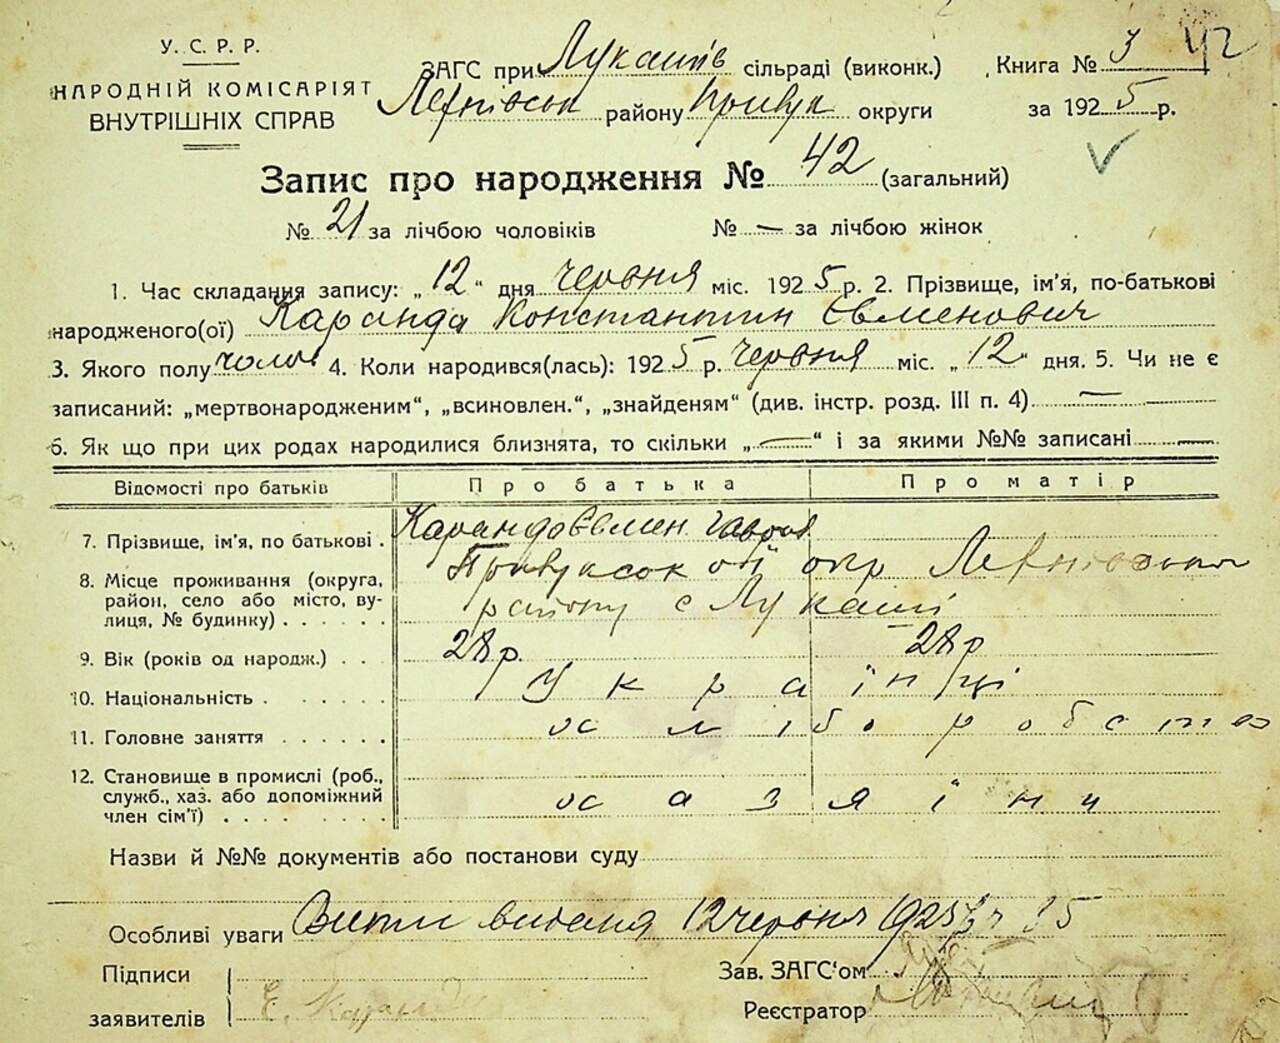 У.С.Р.Р.
НАРОДНІЙ КОМІСАРІЯТ
ВНУТРІШНІХ СПРАВ
ЗАГС при Лукашів сільраді (виконк.)
районy округи
Книга № 3 42
за 1925 р.
Запис про народження № 42 (загальний)
№ 21 за лічбою чоловіків № — за лічбою жінок
1. Час складання запису: „12“ дня червня міс. 1925 р. 2. Прізвище, ім'я, по-батькові
народженого(ої) Каранда Константин Євменович
3. Якого полу чолов 4. Коли народився(лась): 1925 р. червня міс. „12“ дня. 5. Чи не є
записаний: „мертвонародженим“, „всиновлен.“, „знайденям“ (див. інстр. розд. III п. 4) —
6. Як що при цих родах народилися близнята, то скільки „—“ і за якими №№ записані —
Відомості про батьків Про батька Про матір
7. Прізвище, ім'я, по батькові . Каранда Євмен
8. Місце проживання (округа,
район, село або місто, ву-
лиця, № будинку) . . . . . . окр
району с Лукаші
9. Вік (років од народж.) . . . 28 р. 28 р
10. Національність . . . . . . Українці
11. Головне заняття . . . . . .
12. Становище в промислі (роб.,
служб., хаз. або допоміжний
член сім'ї) . . . . . . . .
Назви й №№ документів або постанови суду
Особливі уваги видана 12 червня 1925
Підписи
заявителів Е. Каранда
Зав. ЗАГС'ом
Реєстратор